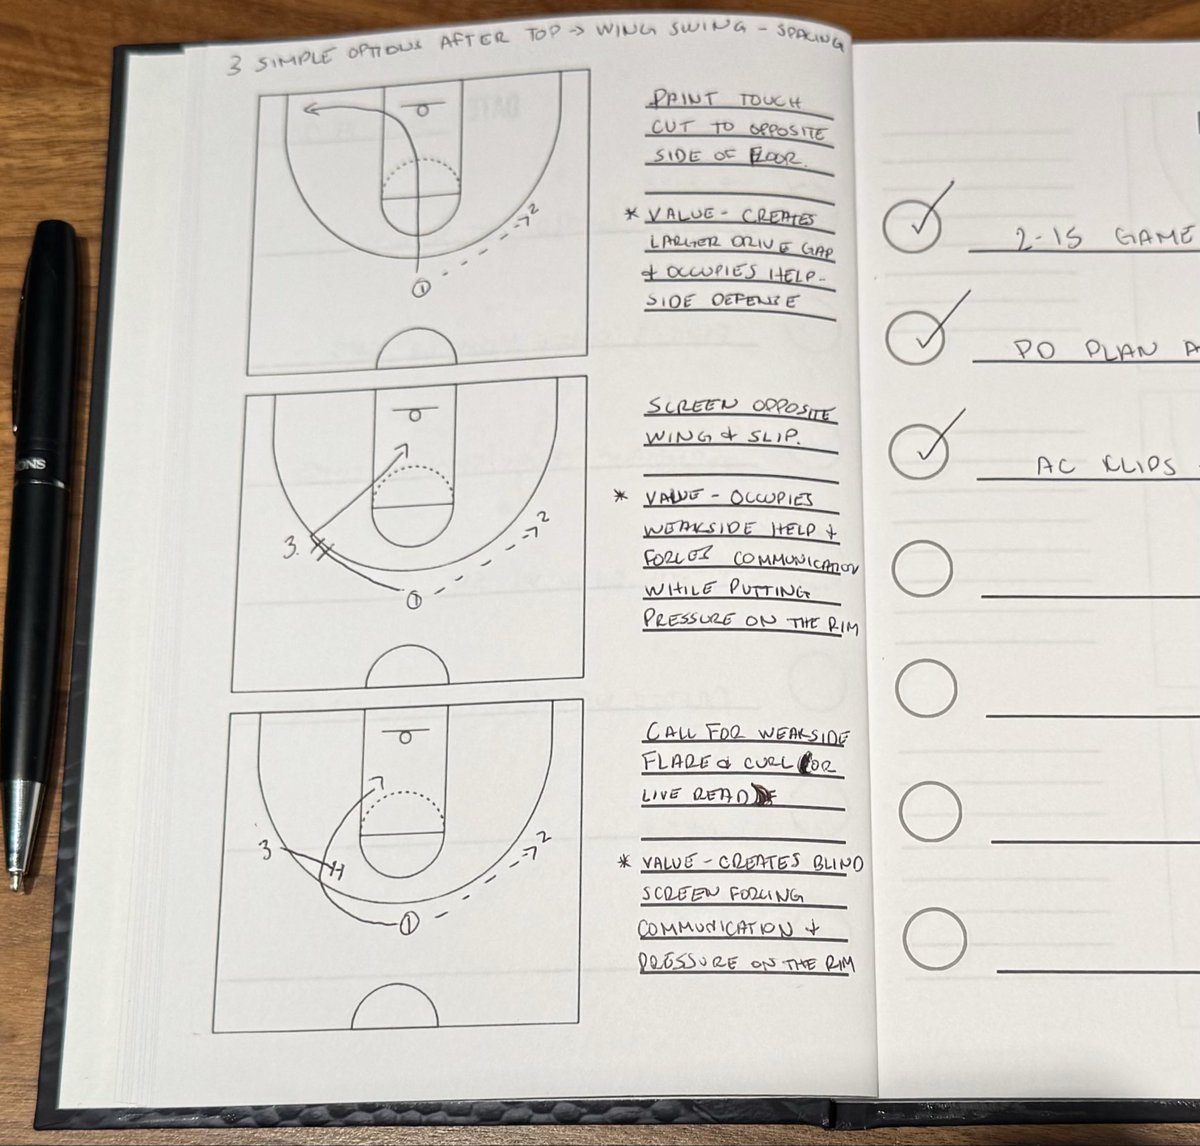 3 SIMPLE OPTIONS AFTER TOP → WING SWING - SPACING
PAINT TOUCH
CUT TO OPPOSITE
SIDE OF FLOOR.
* VALUE - CREATES
LARGER DRIVE GAP
+ OCCUPIES HELP-
SIDE DEFENSE
2
1
SCREEN OPPOSITE
WING + SLIP.
* VALUE - OCCUPIES
WEAKSIDE HELP +
FORCES COMMUNICATION
WHILE PUTTING
PRESSURE ON THE RIM
3.
2
1
CALL FOR WEAKSIDE
FLARE + CURL FOR
LIVE READ
* VALUE - CREATES BLIND
SCREEN FORCING
COMMUNICATION +
PRESSURE ON THE RIM
3
2
1
2-15 GAME
PO PLAN
AC KLIPS
ONS